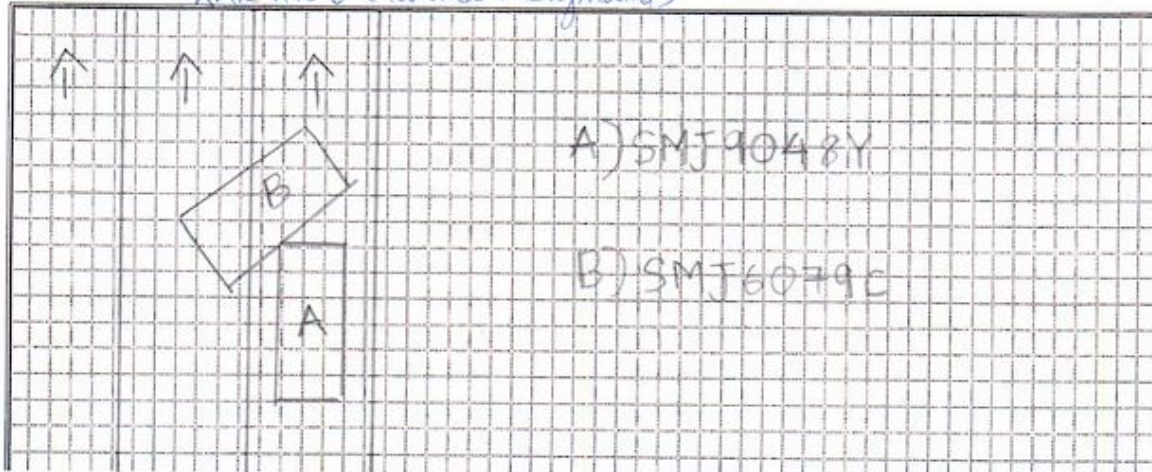 A) SMJ9048Y
B
B) SMJ6079C
A